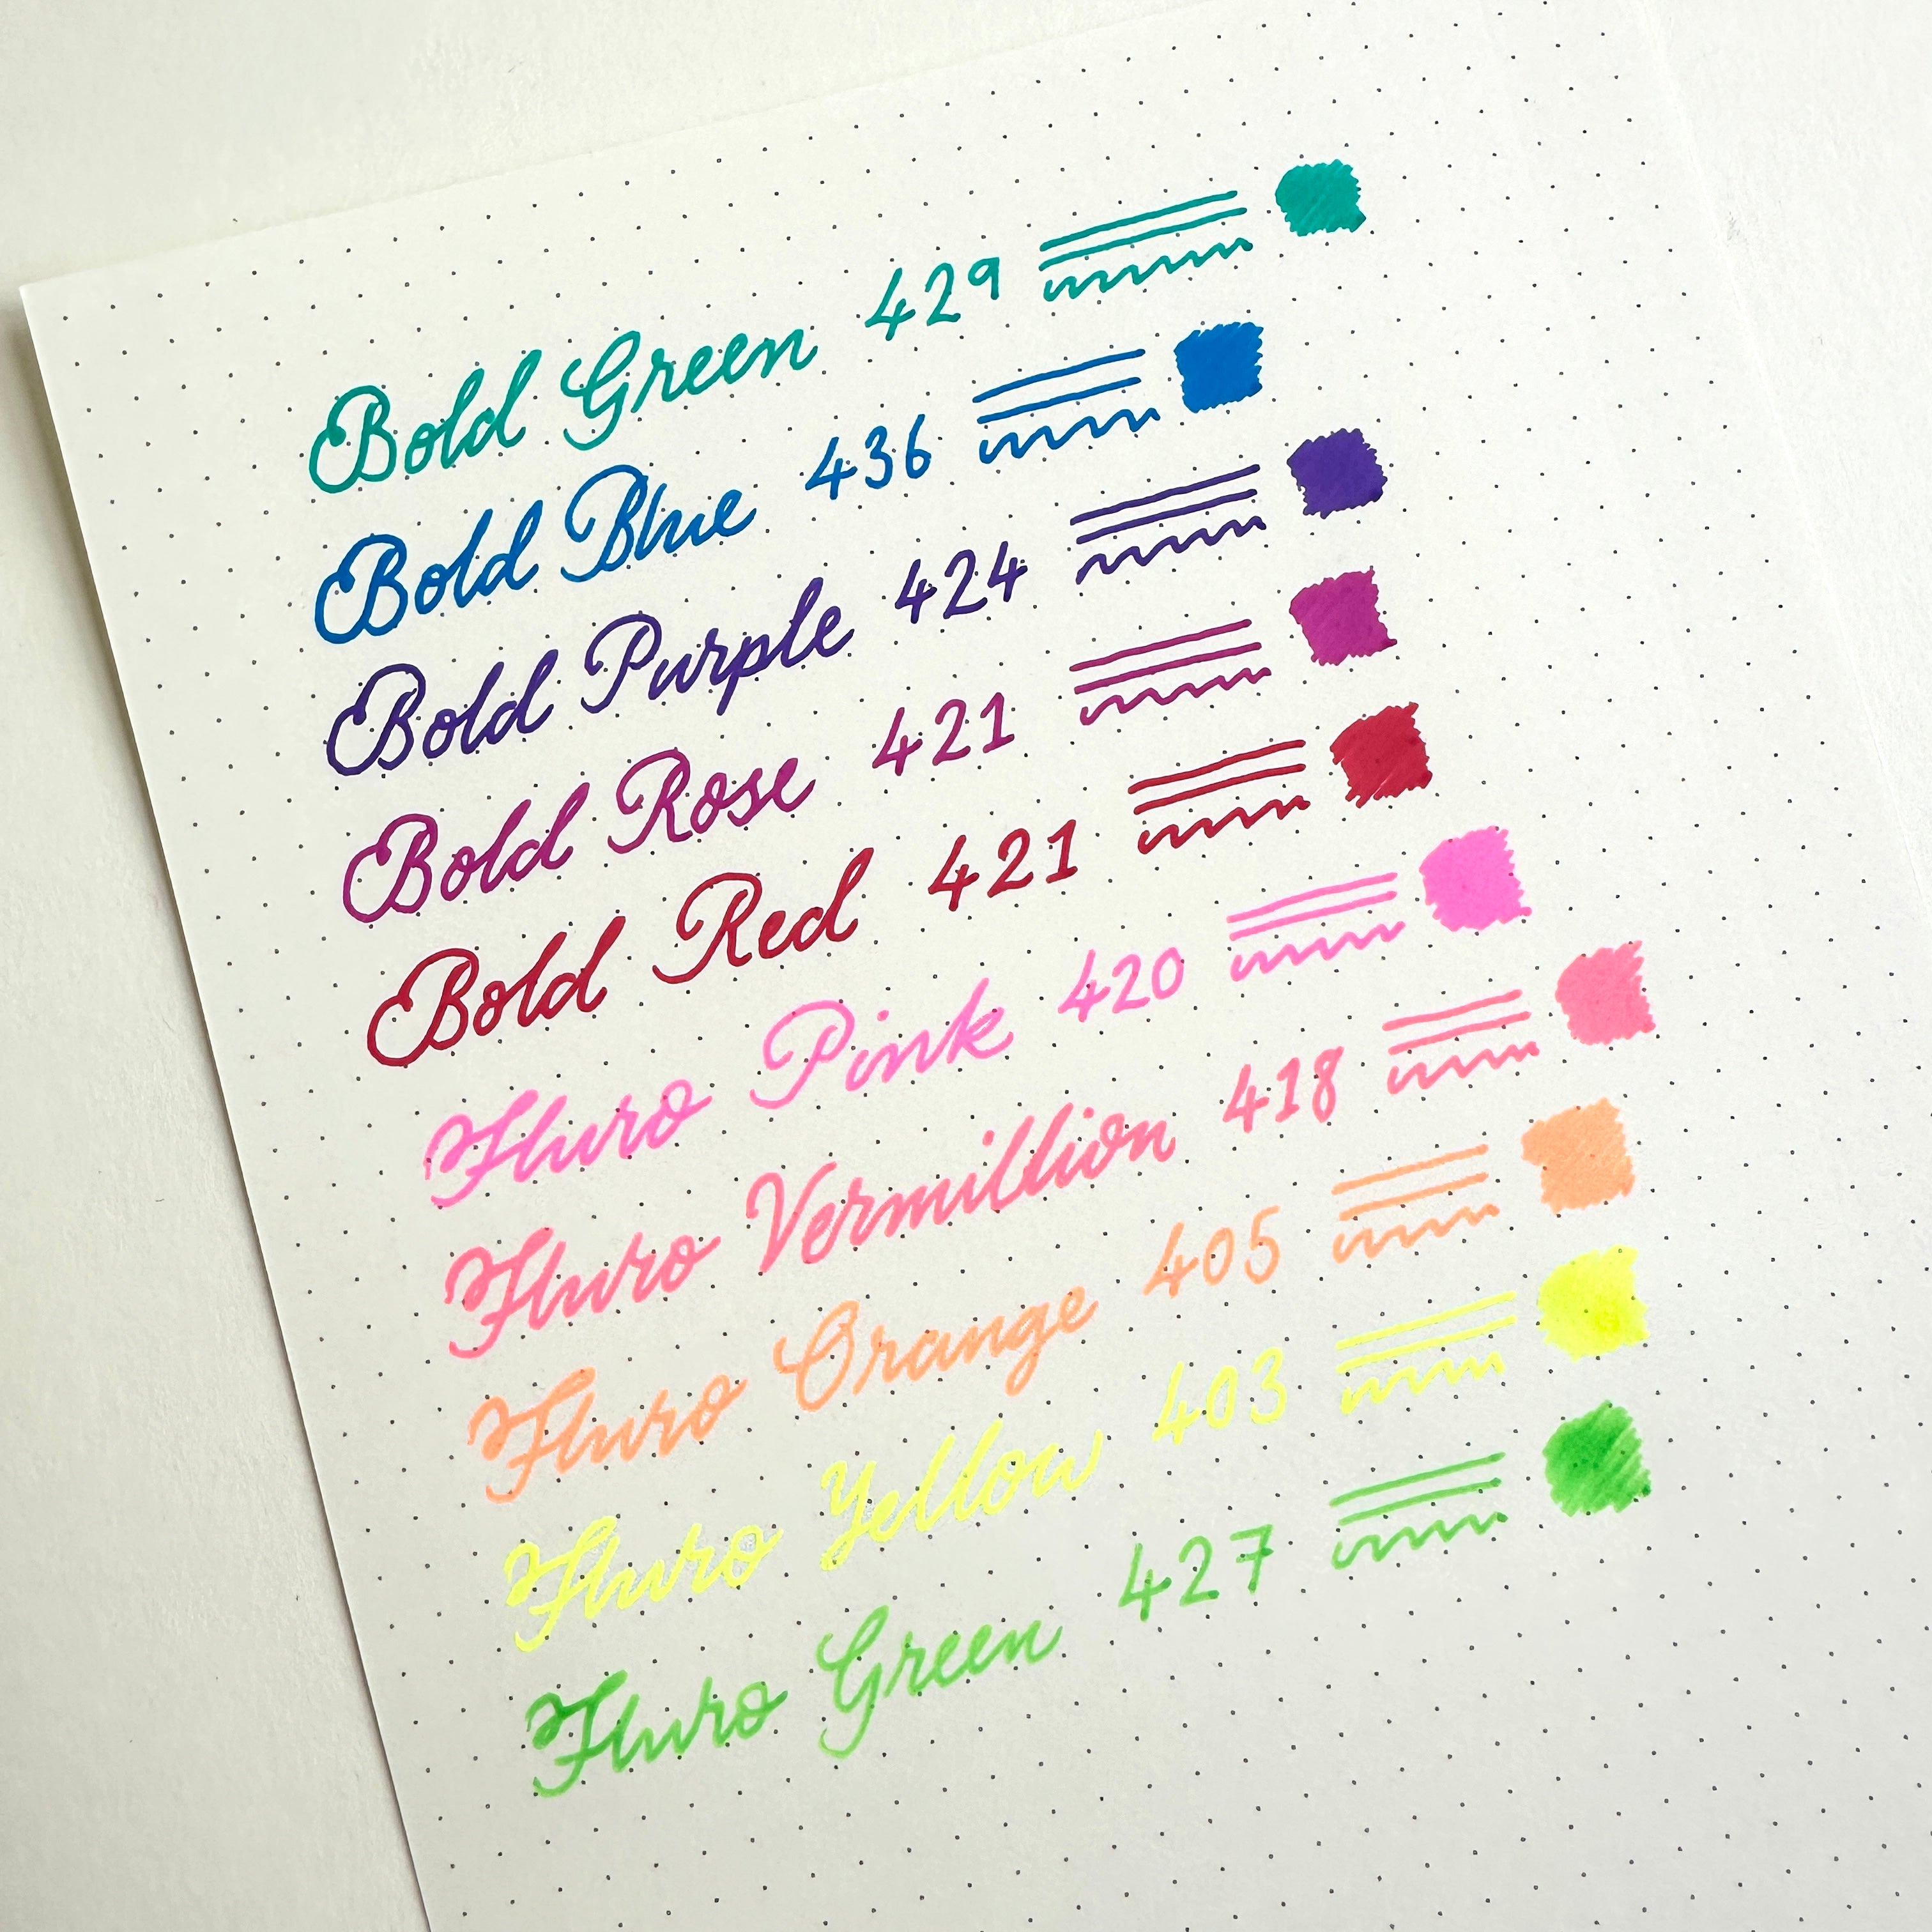 Bold Green 429
Bold Blue 436
Bold Purple 424
Bold Rose 421
Bold Red 421
Fluro Pink 420
Fluro Vermillion 418
Fluro Orange 405
Fluro Yellow 403
Fluro Green 427